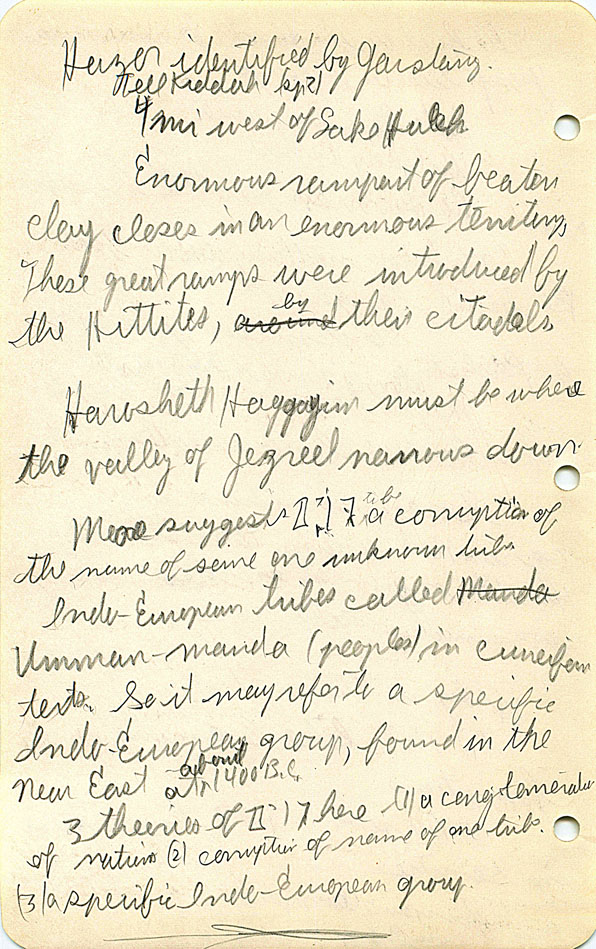 Hazor identified by Garstang.
Tell Keddah (sp?)
4 mi west of Lake Huleh
Enormous rampart of beaten
clay closes in an enormous territory,
These great ramps were introduced by
the Hittites, around by their citadels,
Harosheth Haggoyim must be where
the valley of Jezreel narrows down.
suggests גוים to be a corruption of
the name of some one unknown tribe
Indo-European tribes called Manda
Umman-manda (peoples) in cuneiform
texts. So it may refer to a specific
Indo-European group, found in the
Near East at about 1400 B.C.
3 theories of גוים here (1) a conglomeration
of nations (2) corruption of name of one tribe.
(3) a specific Indo-European group.